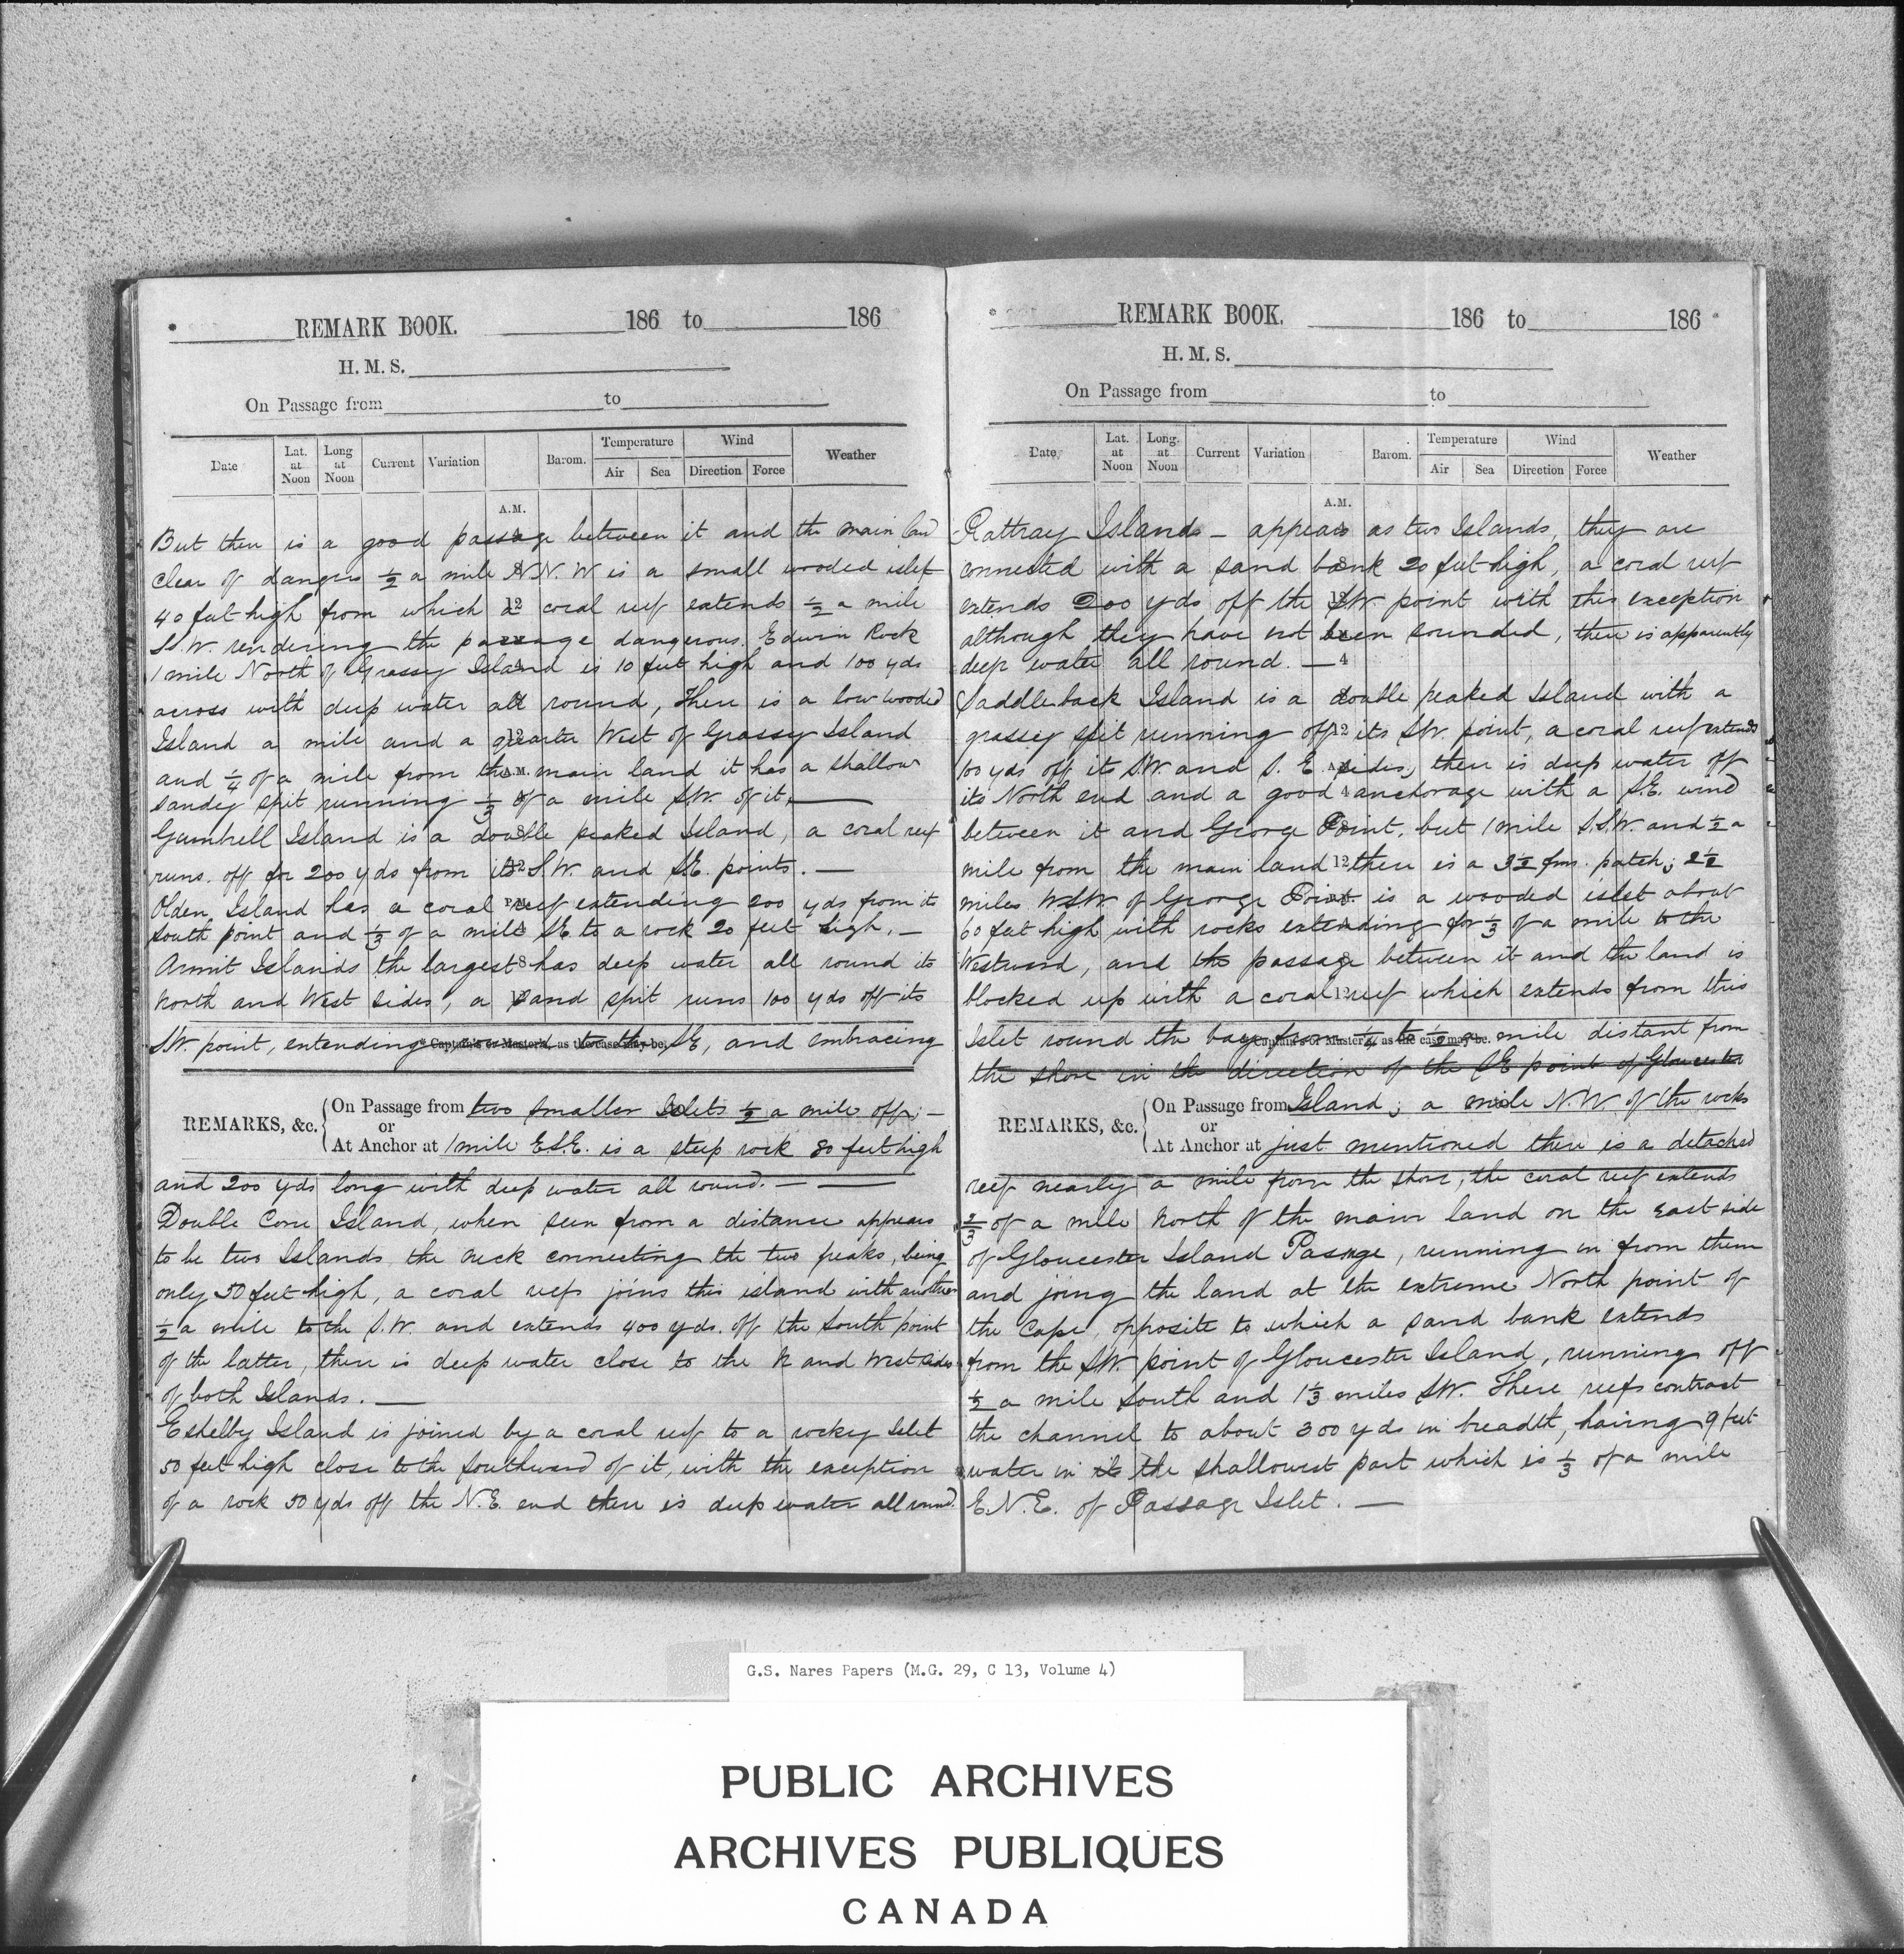 REMARK BOOK. 186 to 186
H. M. S.
On Passage from to
Date Lat. at Noon Long at Noon Current Variation Barom. Temperature Air Sea Wind Direction Force Weather
A.M.
But then is a good passage between it and the main land
clear of dangers ½ a mile N.N.W is a small wooded islet
40 feet high from which a coral reef extends ½ a mile
S.W. rendering the passage dangerous. Edwin Rock
1 mile North of Grassy Island is 10 feet high and 100 yds
across with deep water all round, There is a low wooded
Island a mile and a quarter West of Grassy Island
and ¼ of a mile from the main land it has a shallow
sandey spit running ⅓ of a mile SW. of it, —
Gumbrell Island is a double peaked Island, a coral reef
runs off for 200 yds from its S.W. and S.E. points. —
Olden Island has a coral reef extending 200 yds from its
South point and ⅓ of a mile SE to a rock 20 feet high. —
Armit Islands the largest has deep water all round its
North and West sides, a sand spit runs 100 yds off its
S.W. point, extending to the SE, and embracing
* Captain's or Master's, as the case may be.
REMARKS, &c. On Passage from two smaller Islets ½ a mile off; —
or
At Anchor at 1 mile E.S.E. is a steep rock 80 feet high
and 200 yds long with deep water all round. — —
Double Cone Island, when seen from a distance appears
to be two Islands the neck connecting the two peaks, being
only 50 feet high, a coral reef joins this island with another
½ a mile to the S.W. and extends 400 yds. off the South point
of the latter, then is deep water close to the N and West sides
of both Islands. —
Eshelby Island is joined by a coral reef to a rockey Islet
50 feet high close to the Southward of it, with the exception
of a rock 50 yds off the N.E. end there is deep water all round.
REMARK BOOK. 186 to 186
H. M. S.
On Passage from to
Date Lat. at Noon Long. at Noon Current Variation Barom. Temperature Air Sea Wind Direction Force Weather
A.M.
Rattray Islands — appears as two Islands, they are
connected with a sand bank 20 feet high, a coral reef
extends 200 yds off the SW. point with this exception
although they have not been sounded, there is apparently
deep water all round. —
Saddleback Island is a double peaked Island with a
grassey spit running off its SW. point, a coral reef extends
100 yds off its S.W. and S. E sides, then is deep water off
its North end and a good anchorage with a S.E. wind
between it and George Point, but 1 mile S.S.W. and ½ a
mile from the main land then is a 3½ fms. patch; 2½
miles W.S.W. of George Point is a wooded islet about
60 feet high with rocks extending for ⅓ of a mile to the
Westward, and the passage between it and the land is
blocked up with a coral reef which extends from this
Islet round the bay from ¼ to ½ a mile distant from
* Captain's or Master's, as the case may be.
the shore in the direction of the SE point of Gloucester
REMARKS, &c. On Passage from Island; a mile N.W. of the rocks
or
At Anchor at just mentioned there is a detached
reef nearly a mile from the shore, the coral reef extends
⅔ of a mile North of the main land on the east side
of Gloucester Island Passage, running in from them
and joing the land at the extreme North point of
the Cape, opposite to which a sand bank extends
from the SW. point of Gloucester Island, running off
½ a mile South and 1⅓ miles SW. These reefs contract
the channel to about 300 yds in breadth, having 9 feet
water in the shallowest part which is ⅓ of a mile
E.N.E. of Passage Islet. —
G.S. Nares Papers (M.G. 29, C 13, Volume 4)
PUBLIC ARCHIVES
ARCHIVES PUBLIQUES
CANADA